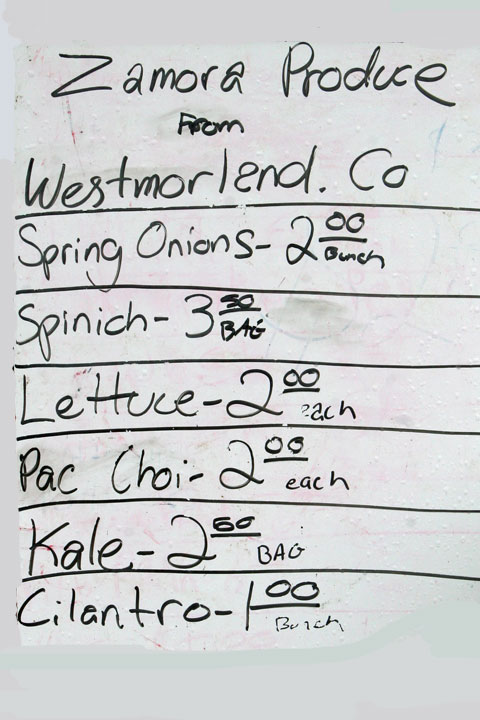 Zamora Produce
From
Westmorlend. Co
Spring Onions- 2 00 Bunch
Spinich- 3 50 BAG
Lettuce- 2 00 each
Pac Choi- 2 00 each
Kale- 2 50 BAG
Cilantro- 1 00 Bunch